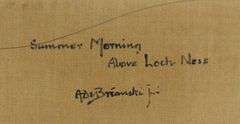 Summer Morning
Above Loch Ness
A De Breanski Jr